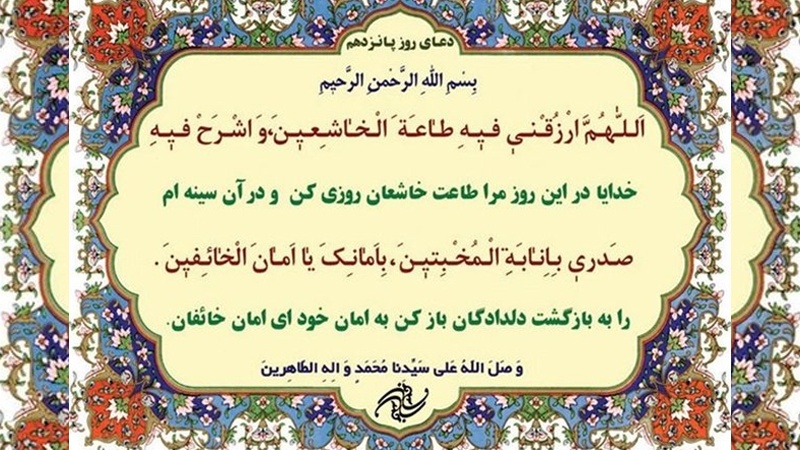 دعای روز پانزدهم
بِسْمِ اللهِ الرَّحْمٰنِ الرَّحیمِ
اَللّٰهُمَّ ارْزُقْنی فیهِ طاعَةَ الْخاشِعینَ، وَ اشْرَحْ فیهِ
خدایا در این روز مرا طاعت خاشعان روزی کن و در آن سینه ام
صَدری بِاِنابَةِ الْمُخْبِتینَ، بِاَمانِکَ یا اَمانَ الْخائِفینَ.
را به بازگشت دلدادگان باز کن به امان خود ای امان خائفان.
وَ صَلَ اللهُ عَلی سَیِّدِنا مُحَمَدٍ وَ الِهِ الطّاهِرینَ